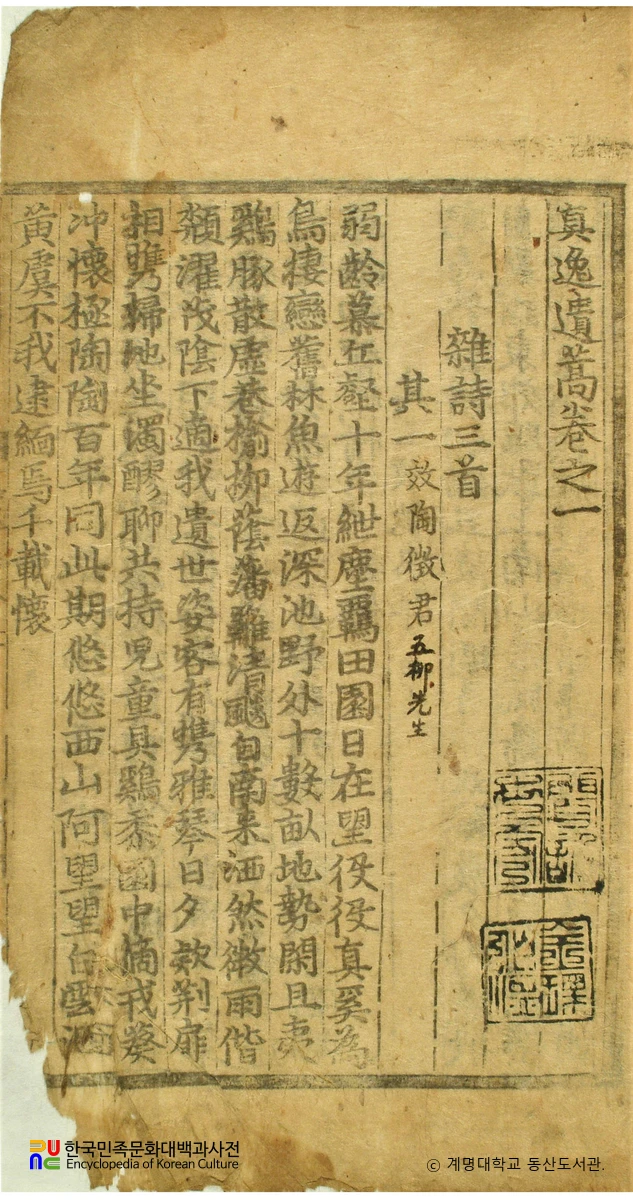 真逸遺蒿卷之一
雜詩三首
其一 效陶徵君 五柳先生
弱齡慕丘壑十年紲塵羈田園日在望役役真奚為
鳥棲戀舊林魚遊返深池野外十數畝地勢閑且夷
鷄豚散虛巷榆柳蔭藩籬清颸自南來洒然微雨偕
頮濯茂陰下適我遺世姿客有携雅琴日夕款荆扉
相携掃地坐濁醪聊共持兒童具鷄黍園中摘戎葵
冲懷極陶陶百年同此期悠悠西山阿望望白雲
黃虞不我逮緬焉千載懷
한국민족문화대백과사전
Encyclopedia of Korean Culture
© 계명대학교 동산도서관.